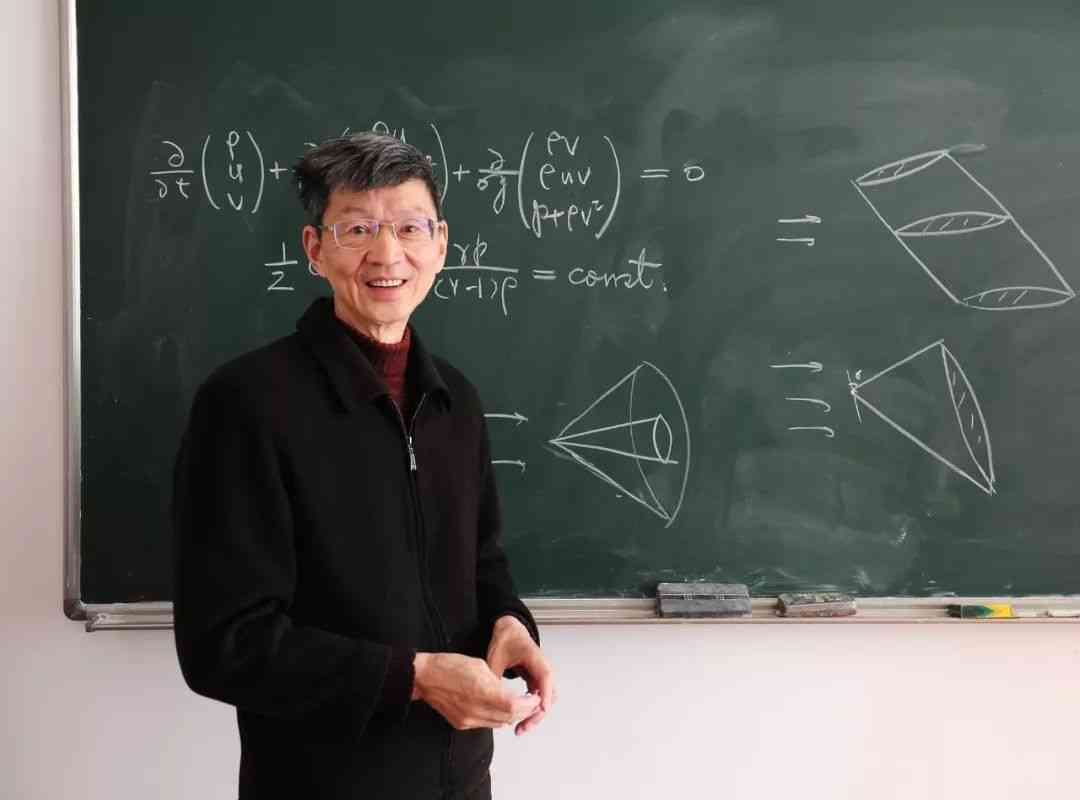 ∂/∂t (ρ u v) + ∂ + ∂/∂y (ρv ρuv p+ρv²) = 0
1/2 γp/(γ-1)ρ = const.